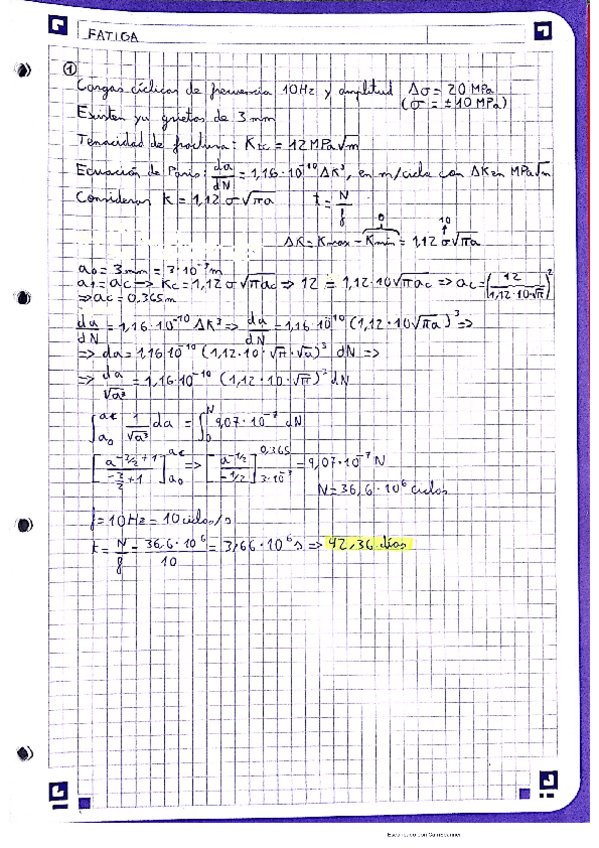 FATIGA
①
Cargas cíclicas de frecuencia 10Hz y amplitud Δσ = 20 MPa
(σ = ±10 MPa)
Existen ya grietas de 3mm
Tenacidad de fractura: K_IC = 12 MPa√m
Ecuación de Paris: da/dN = 1,16·10^-10 ΔK³, en m/ciclo con ΔK en MPa√m
Considerar K = 1,12 σ√πa    t = N/f
0    10
ΔK = Kmax - Kmin = 1,12 σ√πa
a0 = 3mm = 3·10^-3 m
a1 = ac → Kc = 1,12 σ√πac ⇒ 12 = 1,12·10√πac ⇒ ac = (12/(1,12·10√π))²
⇒ ac = 0,365m
da/dN = 1,16·10^-10 ΔK³ ⇒ da/dN = 1,16·10^10 (1,12·10√πa)³ ⇒
⇒ da = 1,16·10^-10 (1,12·10·√π·√a)³ dN ⇒
⇒ da/√a³ = 1,16·10^-10 (1,12·10·√π)³ dN
∫_a0^ac 1/√a³ da = ∫_0^N 9,07·10^-7 dN
[a^(-3/2+1)/(-3/2+1)]_a0^ac ⇒ [a^(-1/2)/(-1/2)]_(3·10^-3)^0,365 = 9,07·10^-7 N
N = 36,6·10^6 ciclos
f = 10Hz = 10 ciclos/s
t = N/f = 36,6·10^6/10 = 3,66·10^6 s ⇒ 42,36 días
Escaneado con CamScanner